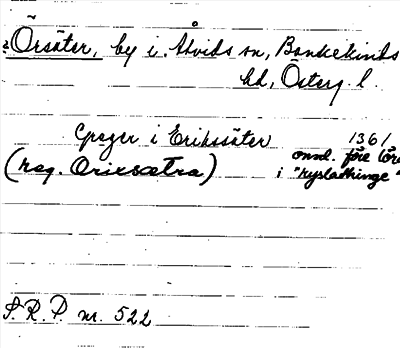 Örsäter, by i Åtvids sn, Bankekinds
hd, Österg. l.
Greger i Erikssäter 1361
(reg. Orixsætra) onsd. före
i "Nysladhinge"
S.R.P. nr. 522